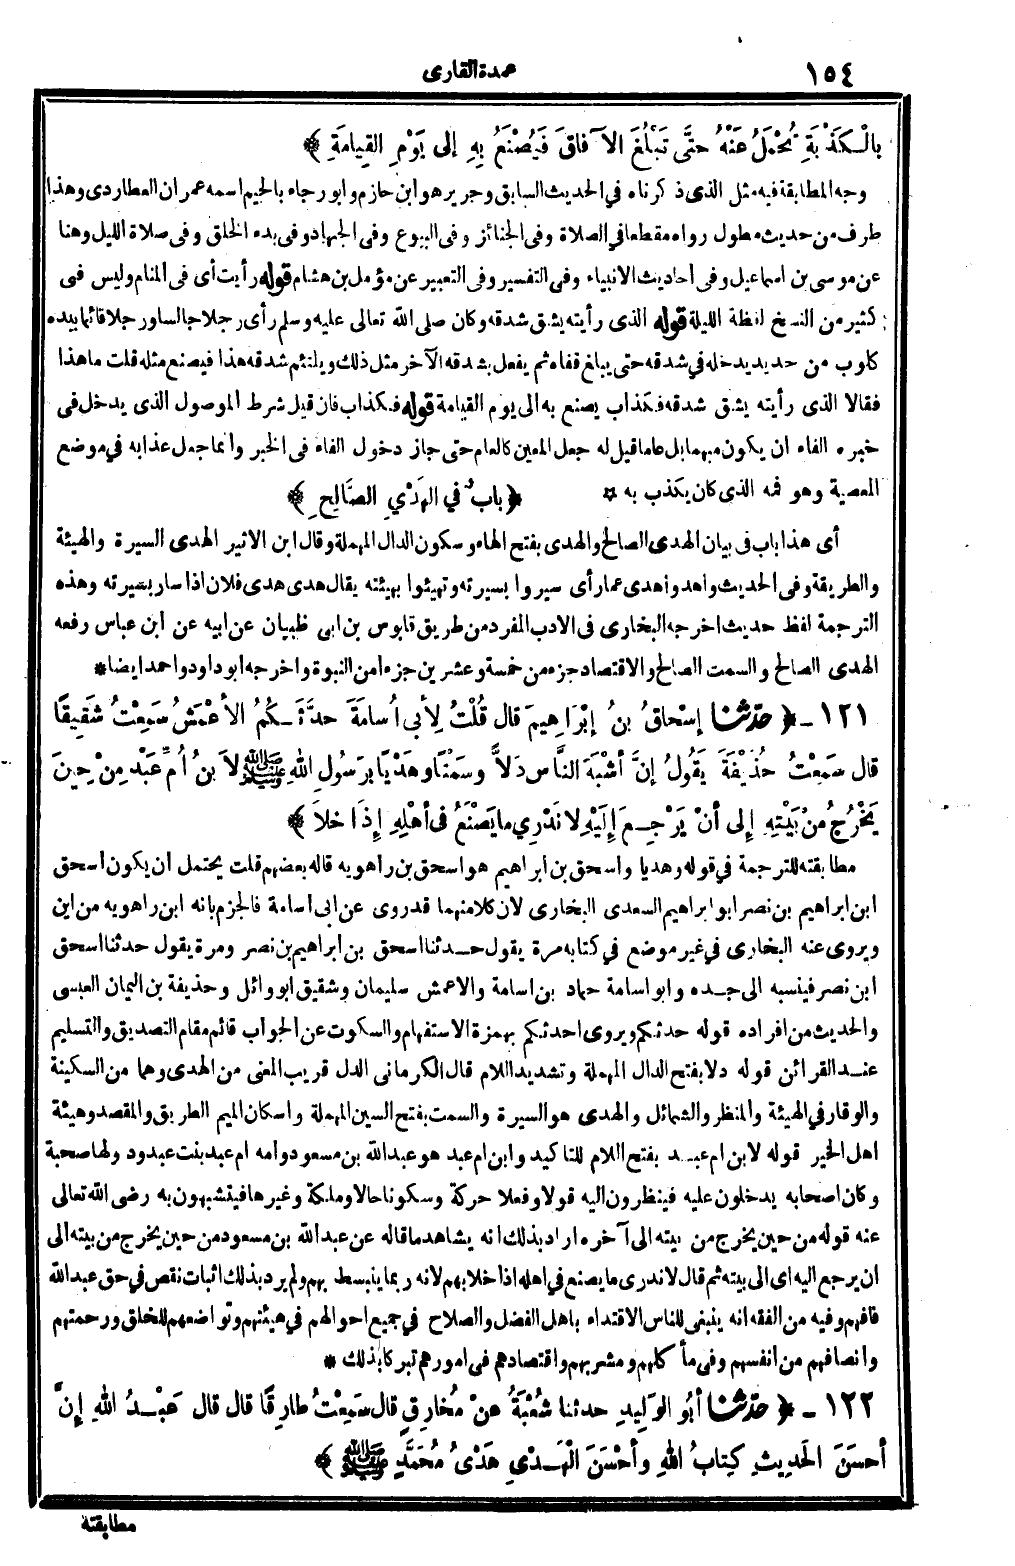 ١٥٤ عمدة القارى
بالْكَذْبَةِ تُحْمَلُ عَنْهُ حتَّى تَبْلُغَ الآفاقَ فَيُصْنَعُ بِهِ إلى يَوْمِ القِيامَةِ ﴾
وجه المطابقة فيه مثل الذى ذكرناه في الحديث السابق وجرير هو ابن حازم وابو رجاء بالجيم اسمه عمران العطاردى وهذا
طرف من حديث مطول رواه مقطعا في الصلاة وفى الجنائز وفى البيوع وفى الجهاد وفى بدء الخلق وفى صلاة الليل وهنا
عن موسى بن اسماعيل وفى أحاديث الانبياء وفى التفسير وفى التعبير عن مؤمل بن هشام قوله رأيت أى فى المنام وليس فى
كثير من النسخ لفظة الليلة قوله الذى رأيته يشق شدقه وكان صلى الله تعالى عليه وسلم رأى رجلا جالسا ورجلا قائما بيده
كلوب من حديد يدخله في شدقه حتى يبلغ قفاه ثم يفعل بشدقه الآخر مثل ذلك ويلتئم شدقه هذا فيصنع مثله قلت ما هذا
فقالا الذى رأيته يشق شدقه فكذاب يصنع به الى يوم القيامة قوله فكذاب فان قيل شرط الموصول الذى يدخل فى
خبره الفاء ان يكون مبهما بل عاما قيل له جعل المعين كالعام حتى جاز دخول الفاء فى الخبر وانما جعل عذابه في موضع
المعصية وهو فمه الذى كان يكذب به ۞ ﴿ بابٌ في الهَدْيِ الصَّالِحِ ﴾
أى هذا باب فى بيان الهدى الصالح والهدى بفتح الهاء وسكون الدال المهملة وقال ابن الاثير الهدى السيرة والهيئة
والطريقة وفى الحديث واهدوا هدى عمار أى سيروا بسيرته وتهيئوا بهيئته يقال هدى هدى فلان اذا سار بسيرته وهذه
الترجمة لفظ حديث اخرجه البخارى فى الادب المفرد من طريق قابوس بن ابى ظبيان عن ابيه عن ابن عباس رفعه
الهدى الصالح والسمت الصالح والاقتصاد جزء من خمسة وعشرين جزءا من النبوة واخرجه ابو داود واحمد ايضا *
١٢١ - ﴿ حدّثنا إسْحاقُ بنُ إبْرَاهِيمَ قال قُلْتُ لِأبى اُسامَةَ حدَّثَكُمُ الأعْمَشُ سَمِعْتُ شَقِيقًا
قال سَمِعْتُ حُذَيْفَةَ يَقُولُ إنَّ أشْبَهَ النَّاس دَلاًّ وسَمْتًا وهَدْيًا بِرَسُولِ اللهِ ﷺ لاَ بنُ اُمِّ عَبْدٍ مِنْ حِينَ
يَخْرُجُ مِنْ بَيْتِهِ إلى أنْ يَرْجِعَ إلَيْهِ لا نَدْرِي ما يَصْنَعُ فى أهْلِهِ إذَا خلاَ ﴾
مطابقته للترجمة في قوله وهديا واسحق بن ابراهيم هو اسحق بن راهويه قاله بعضهم قلت يحتمل ان يكون اسحق
ابن ابراهيم بن نصر ابو ابراهيم السعدى البخارى لان كلا منهما قد روى عن ابى أسامة فالجزم بانه ابن راهويه من اين
ويروى عنه البخارى في غير موضع في كتابه مرة يقول حدثنا اسحق بن ابراهيم بن نصر ومرة يقول حدثنا اسحق
ابن نصر فينسبه الى جده وابو اسامة حماد بن اسامة والاعمش سليمان وشقيق ابو وائل وحذيفة بن اليمان العبسى
والحديث من افراده قوله حدثكم ويروى احدثكم بهمزة الاستفهام والسكوت عن الجواب قائم مقام التصديق والتسليم
عند القرائن قوله دلا بفتح الدال المهملة وتشديد اللام قال الكرمانى الدل قريب المعنى من الهدى وهما من السكينة
والوقار في الهيئة والمنظر والشمائل والهدى هو السيرة والسمت بفتح السين المهملة واسكان الميم الطريق والمقصد وهيئة
اهل الخير قوله لابن ام عبد بفتح اللام للتاكيد وابن ام عبد هو عبد الله بن مسعود وامه ام عبد بنت عبدود ولها صحبة
وكان اصحابه يدخلون عليه فينظرون اليه قولا وفعلا حركة وسكونا حالا وملكة وغيرها فيتشبهون به رضى الله تعالى
عنه قوله من حين يخرج من بيته الى آخره اراد بذلك انه يشاهد ما قاله عن عبد الله بن مسعود من حين يخرج من بيته الى
ان يرجع اليه اى الى بيته ثم قال لا ندرى ما يصنع في اهله اذا خلا بهم لانه ربما ينبسط بهم ولم يرد بذلك اثبات نقص في حق عبد الله
فافهم وفيه من الفقه انه ينبغى للناس الاقتداء باهل الفضل والصلاح في جميع احوالهم في هيئتهم وتواضعهم للخلق ورحمتهم
وانصافهم من انفسهم وفى مأكلهم ومشربهم واقتصادهم فى امورهم تبركا بذلك *
١٢٢ - ﴿ حدّثنا أبُو الوَلِيدِ حدثنا شُعْبَةُ عنْ مُخارِقٍ قال سَمِعْتُ طارِقًا قال قال عَبْدُ اللهِ إنَّ
أحسَنَ الحَدِيثِ كِتابُ اللهِ وأحْسَنَ الْهَدْىِ هَدْىُ مُحَمَّدٍ ﷺ ﴾
مطابقته